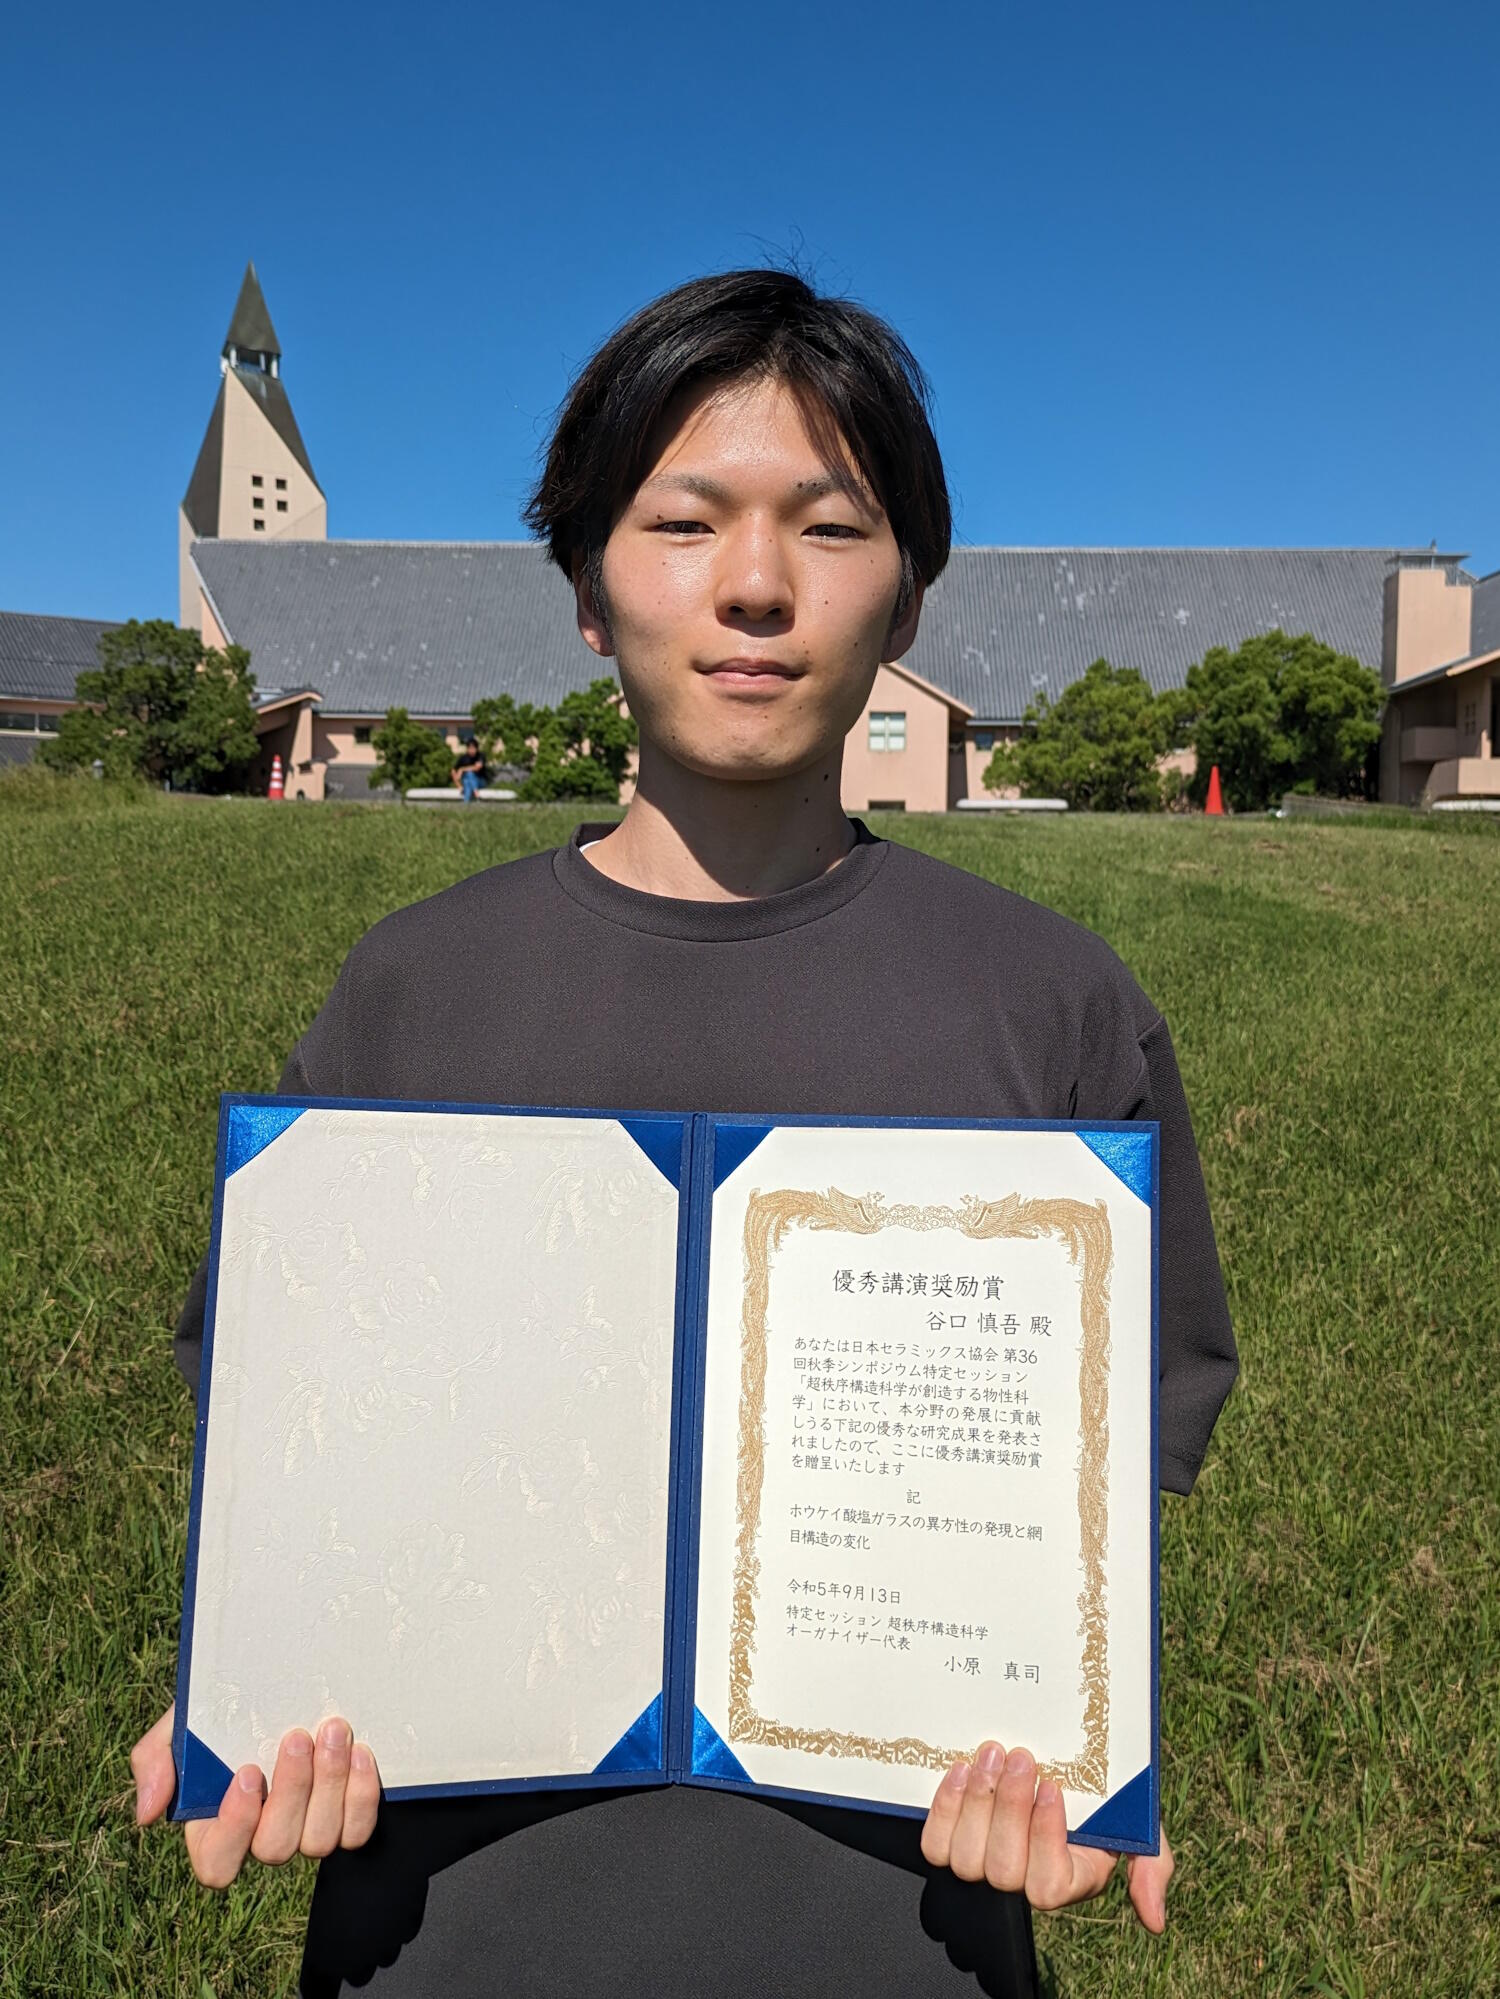 優秀講演奨励賞
谷口 慎吾 殿
あなたは日本セラミックス協会 第36
回秋季シンポジウム特定セッション
「超秩序構造科学が創造する物性科
学」において、本分野の発展に貢献
しうる下記の優秀な研究成果を発表さ
れましたので、ここに優秀講演奨励賞
を贈呈いたします
記
ホウケイ酸塩ガラスの異方性の発現と網
目構造の変化
令和5年9月13日
特定セッション 超秩序構造科学
オーガナイザー代表
小原 真司